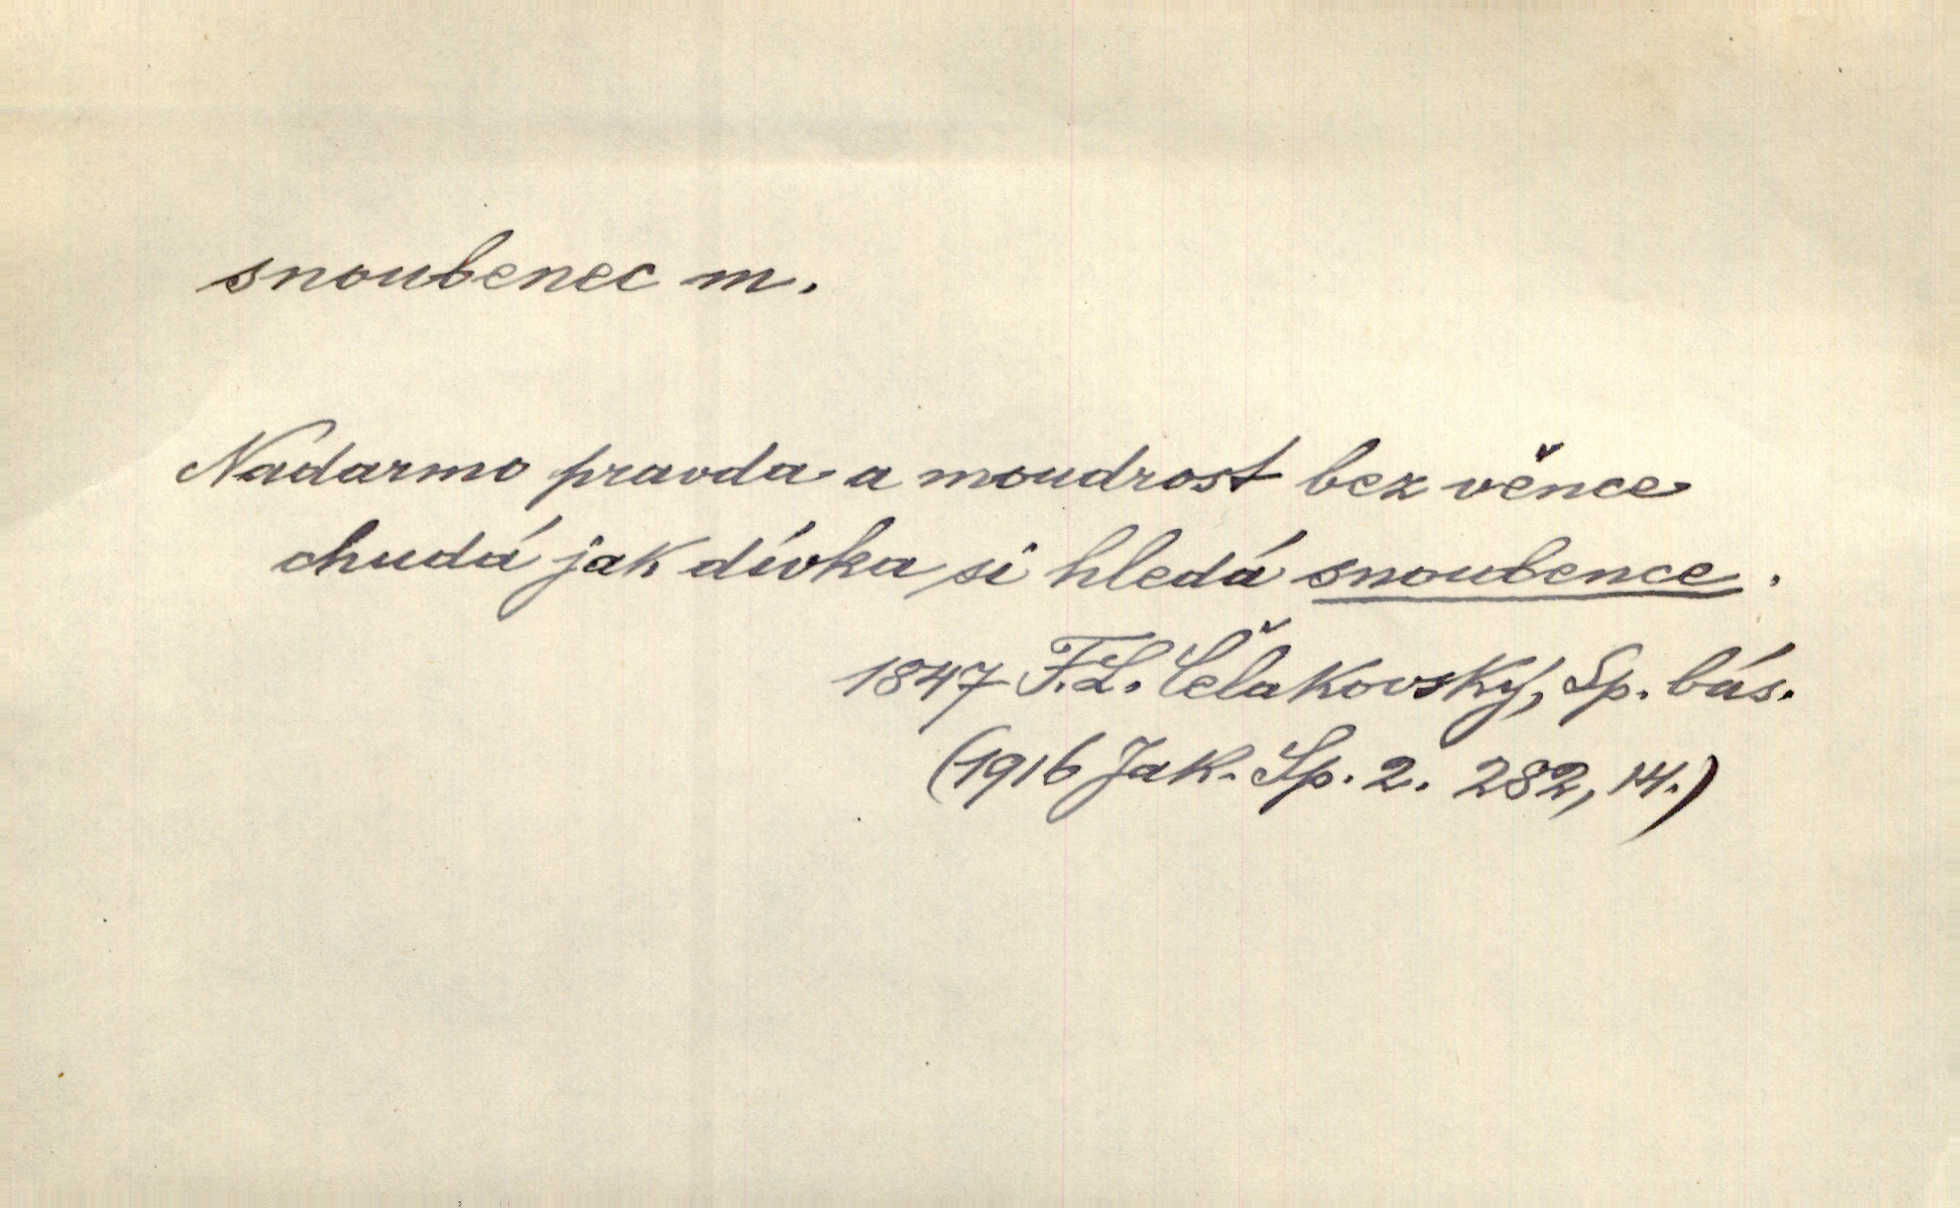 snoubenec m.
Nadarmo pravda a moudrost bez věnce
chudá jak dívka si hledá snoubence.
1847 F.L. Čelakovský, Sp. bás.
(1916 Jak. Sp. 2. 282, 14.)